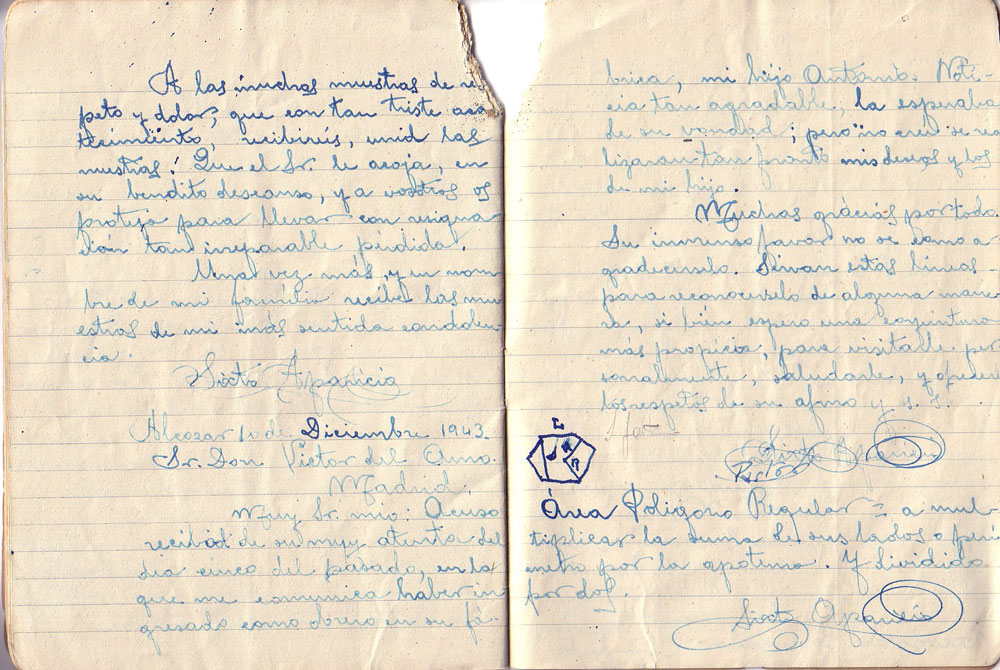 A las muchas muestras de res
peto y dolor, que con tan triste aca
tecimiento, recibireis, unid las
nuestras! Que el Sr. le acoja, en
su bendito descanso, y a vosotros os
proteja para llevar con resigna
ción tan ireparable pérdida.
Una vez más, y en nom-
bre de mi família recibe las mu
estras de mi más sentida condolen
cia.
Sixto Aparicio
Alcozar 10 de Diciembre 1943.
Sr. Don Victor del Amo.
Madrid.
Muy Sr. mio: Acuso
recibo de su muy atenta del
dia cinco del pasado, en la
que me comunica haber in
gresado como obrero en su fá-
brica, mi hijo Antonio. Noti-
cia tan agradable, la esperaba
de su vondad; pero no crei se rea
lizaran tan pronto mis deseos y los
de mi hijo.
Muchas grácias por todo.
Su inmenso favor no se como a-
gradecerselo. Sirvan estas lineas
para reconocerselo de alguna mane
ra, si bién espero una coyuntura
más propicia, para visitarle per
sonalmente, saludarle, y ofrecer
los respetos de su afmo y s. s.
Sixto Aparicio
Área Poligono Regular = a mul-
tiplicar la suma de sus lados o perí
metro por la apotema. Y dividido
por dos.
Sixto Aparicio